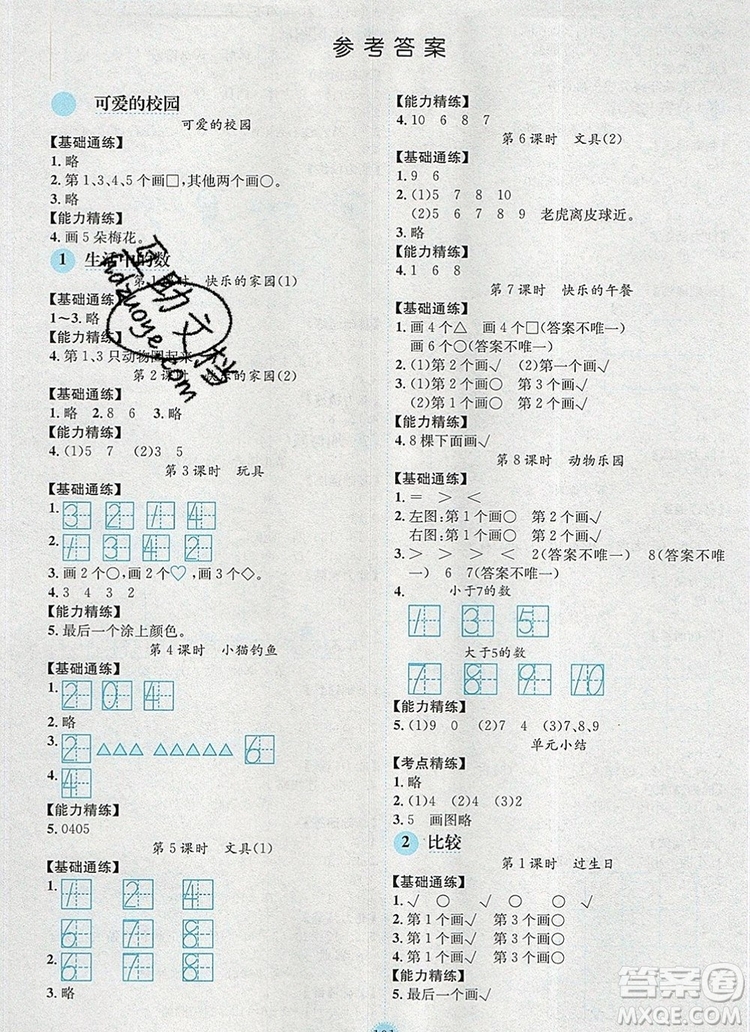 参考答案
可爱的校园
可爱的校园
【基础通练】
1.略
2.第1、3、4、5个画□,其他两个画○。
3.略
【能力精练】
4.画5朵梅花。
1 生活中的数
第1课时 快乐的家园(1)
【基础通练】
1~3.略
【能力精练】
4.第1、3只动物圈起来
第2课时 快乐的家园(2)
【基础通练】
1.略 2.8 6 3.略
【能力精练】
4.(1)5 7 (2)3 5
第3课时 玩具
【基础通练】
1. 3 2 1 4
2. 1 3 2 4
3.画2个○,画2个♡,画3个◇。
4.3 4 3 2
【能力精练】
5.最后一个涂上颜色。
第4课时 小猫钓鱼
【基础通练】
1. 2 0 4
2.略
3. 2 △△△ △△△△△ 6
4. 4
【能力精练】
5.0405
第5课时 文具(1)
【基础通练】
1. 1 2 4
6 7 8
2. 6 9 8
3.略
【能力精练】
4.10 6 8 7
第6课时 文具(2)
【基础通练】
1.9 6
2.(1)5 7 8 10
(2)4 6 7 9 老虎离皮球近。
3.略
【能力精练】
4.1 6 8
第7课时 快乐的午餐
【基础通练】
1.画4个△ 画4个□(答案不唯一)
画6个○(答案不唯一)
2.(1)第2个画√ (2)第2个画√
3.(1)第2个画○ 第3个画√
(2)第2个画○ 第1个画√
【能力精练】
4.8棵下面画√
第8课时 动物乐园
【基础通练】
1.= > <
2.左图:第1个画○ 第2个画√
右图:第1个画○ 第2个画√
3.> > > < 2(答案不唯一) 8(答案不唯
一) 6 7(答案不唯一)
4. 小于7的数
1 3 5
大于5的数
7 8 9 10
【能力精练】
5.(1)9 0 (2)4 7 (3)7、8、9
单元小结
【考点精练】
1.略
2.(1)4 (2)4 (3)5 (4)2
3.5 画图略
2 比较
第1课时 过生日
【基础通练】
1.√ ○ √ ○ ○ √
2.第1个画√ 第3个画○
3.第1个画√ 第3个画○
4.第1个画√ 第3个画○
【能力精练】
5.第2个画√
互助文档
hdzuoye.com
答案圈
MXQE.COM
101